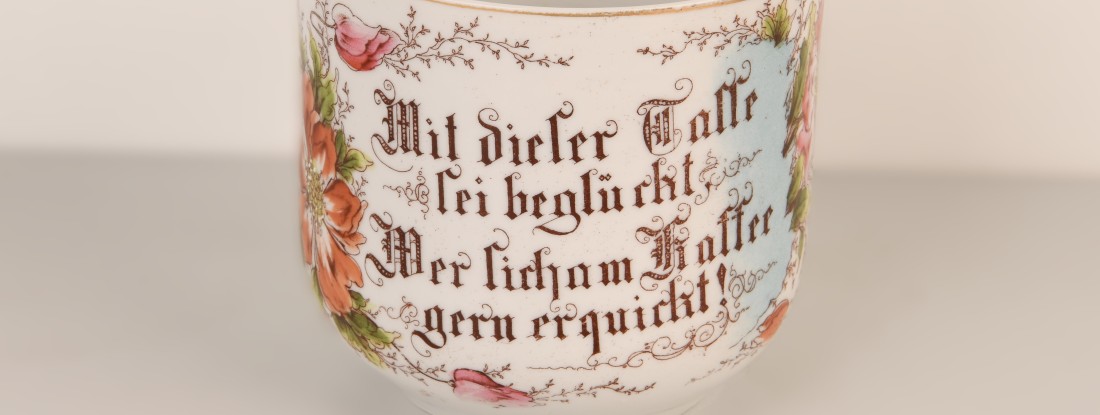 Mit dieſer Taſſe
ſei beglückt,
Wer ſich am Kaffee
gern erquickt!